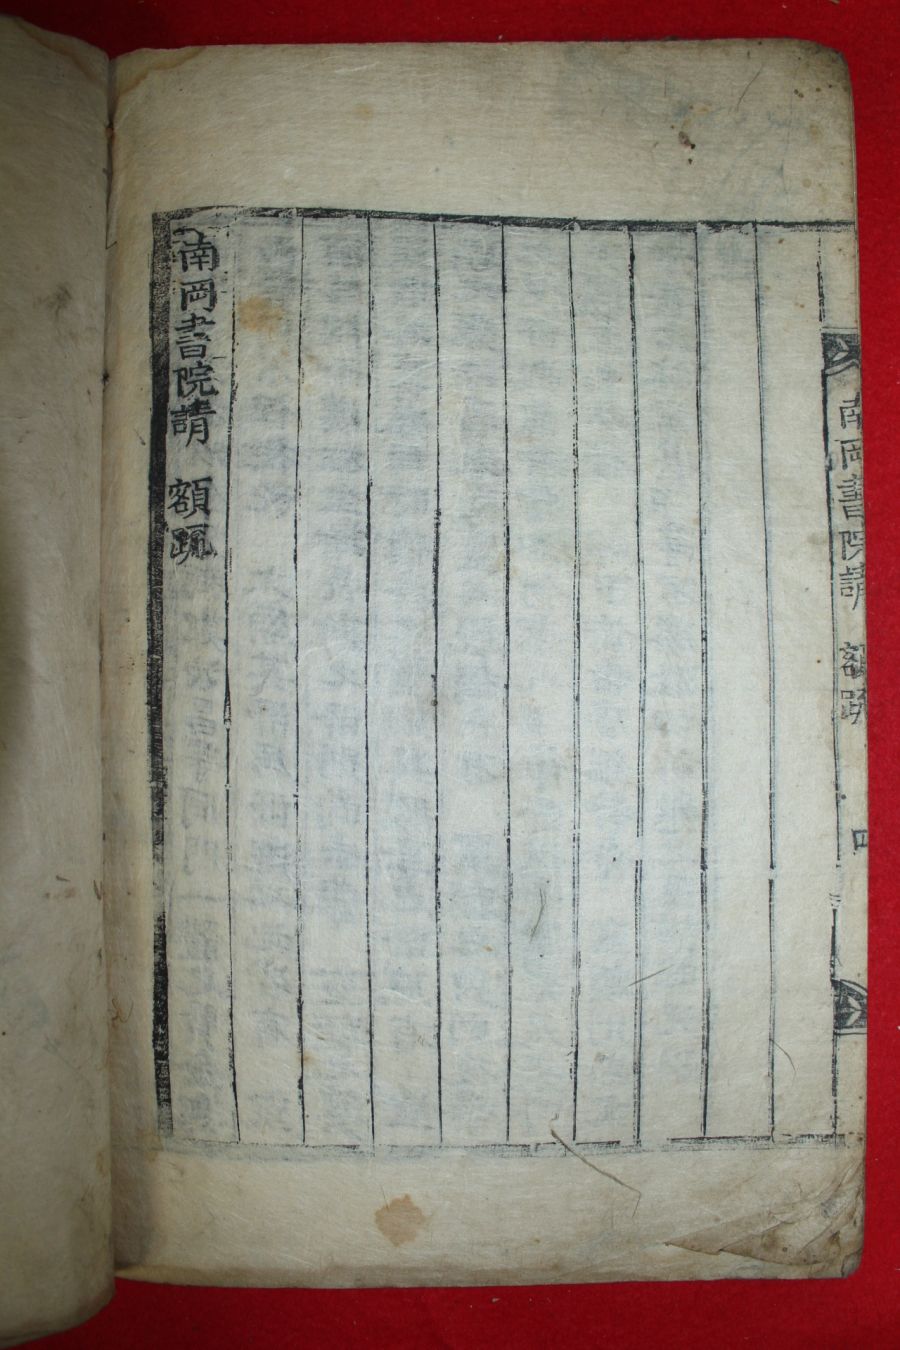 南岡書院請 額疏
四
南岡書院請 額疏